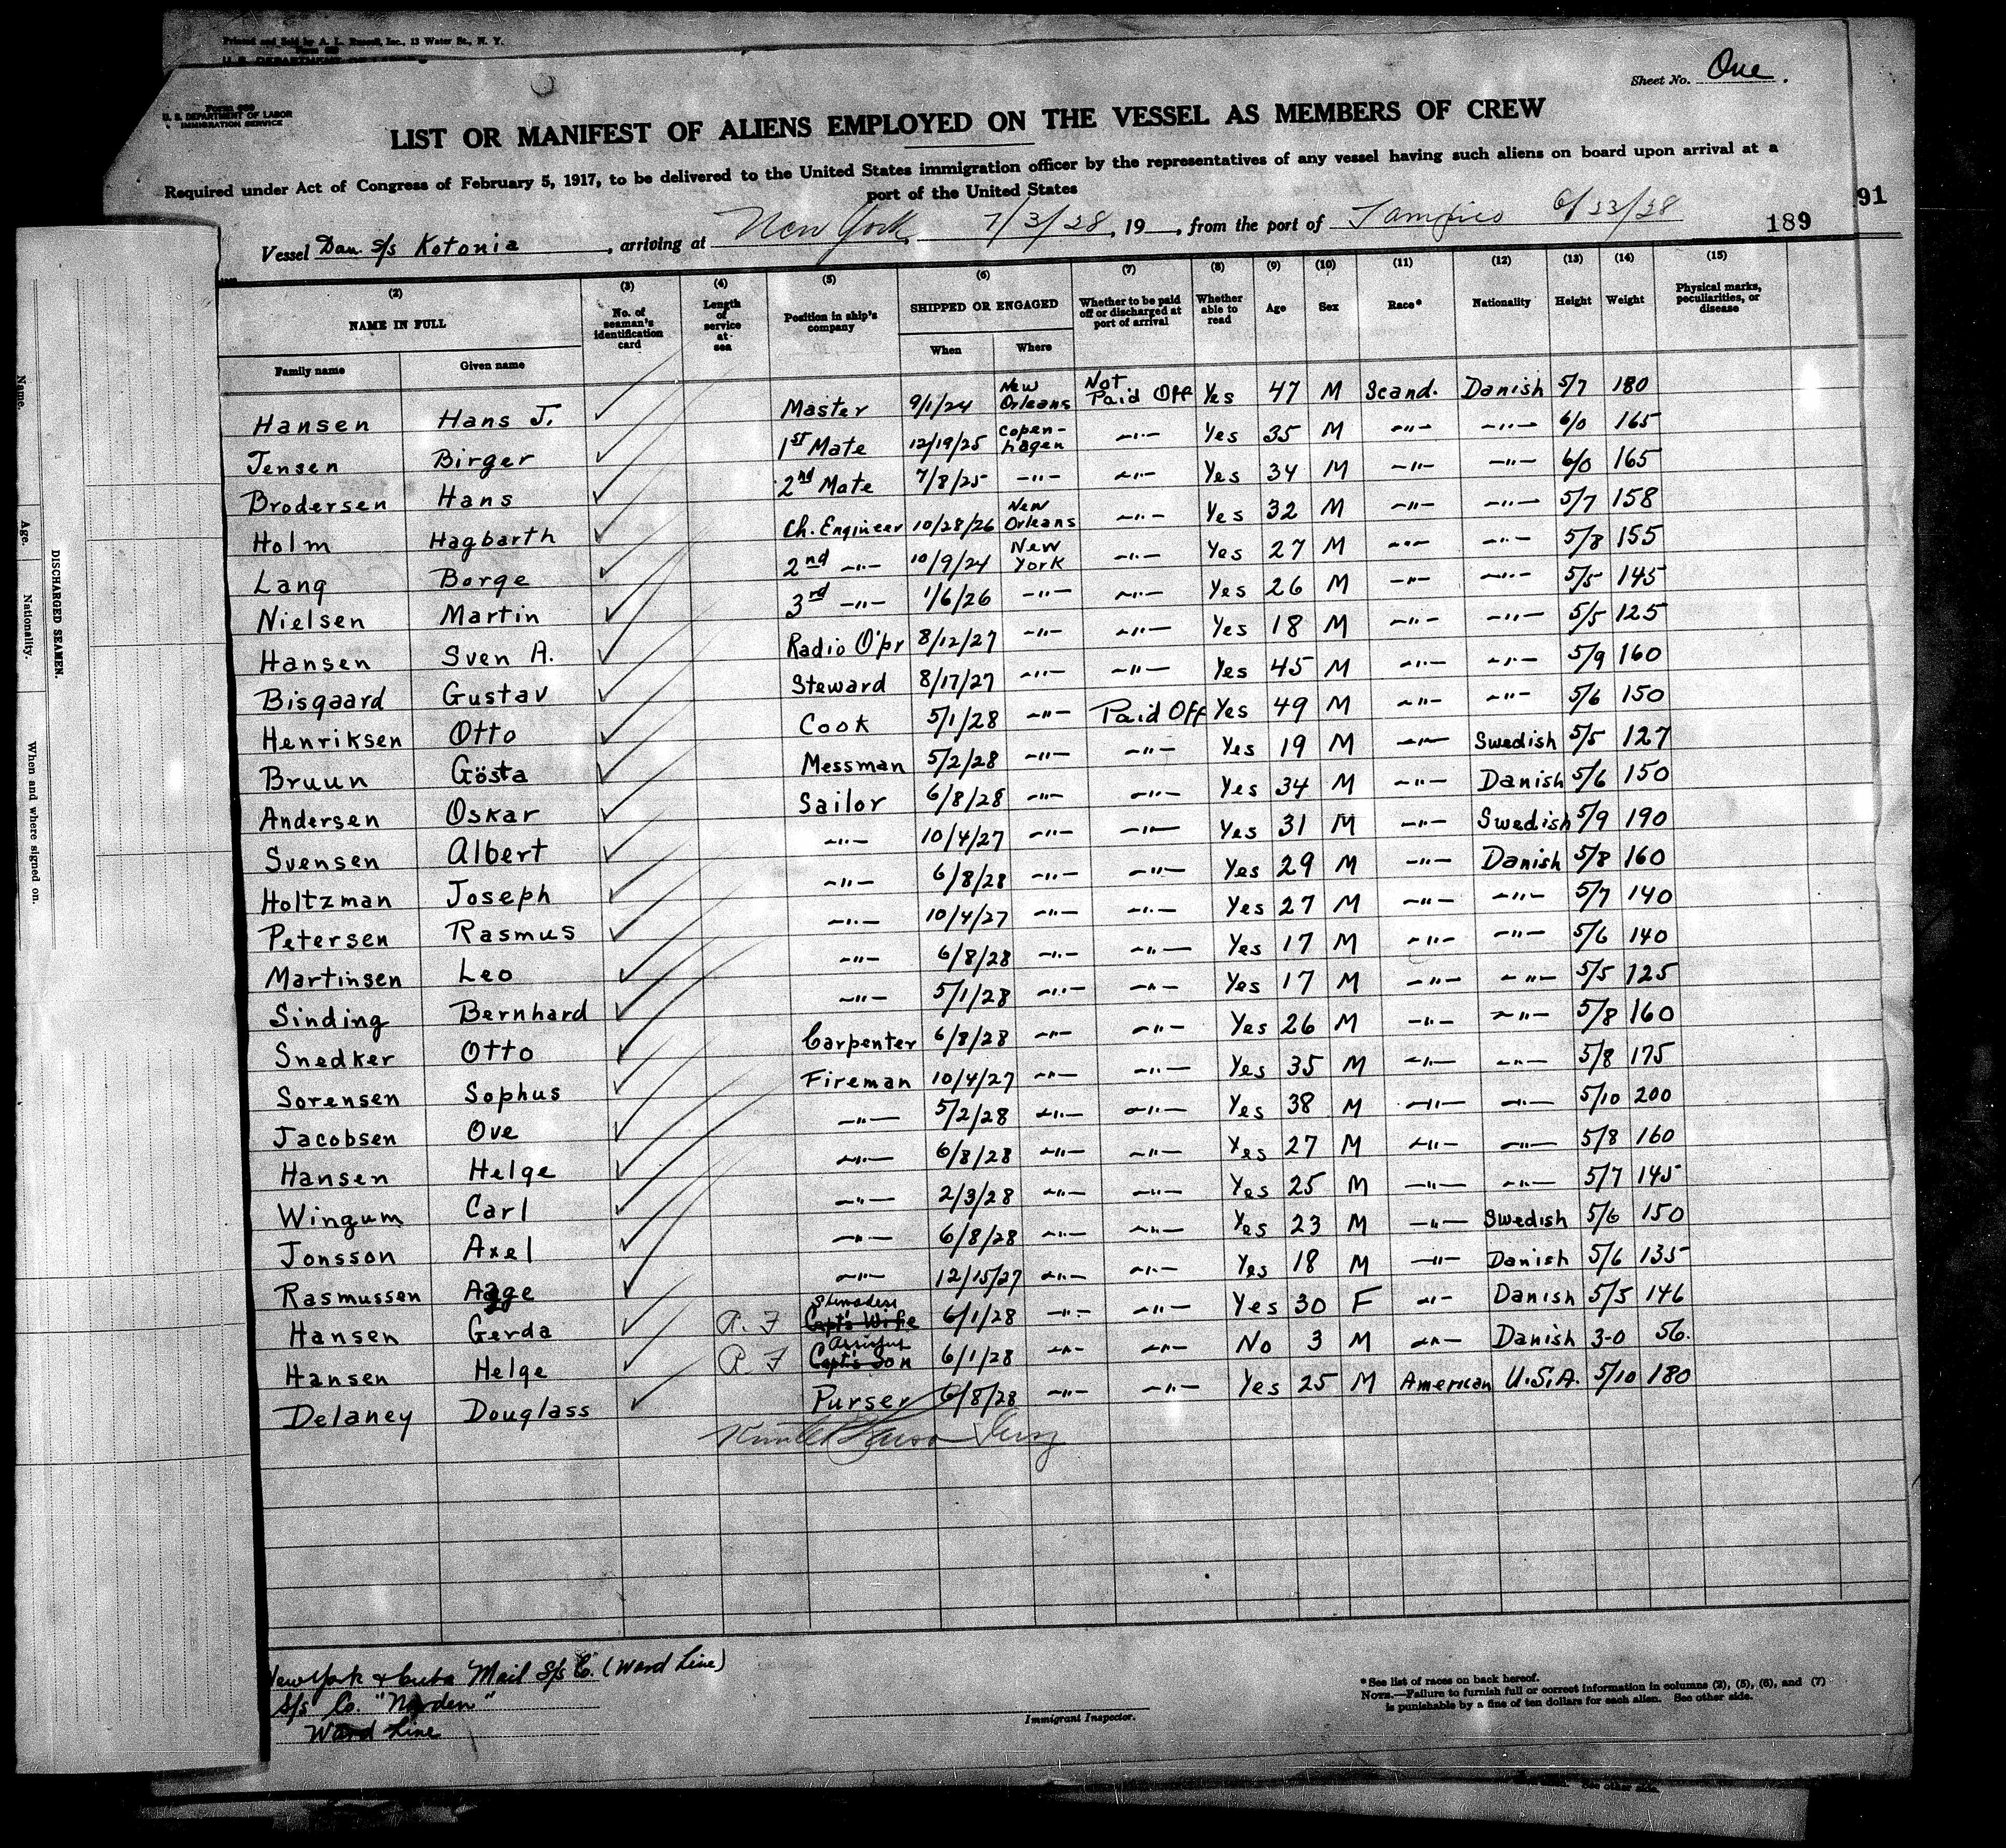 Printed and Sold by A. L. Russell, Inc., 13 Water St., N. Y.
Sheet No. One.
U. S. DEPARTMENT OF LABOR
IMMIGRATION SERVICE
LIST OR MANIFEST OF ALIENS EMPLOYED ON THE VESSEL AS MEMBERS OF CREW
Required under Act of Congress of February 5, 1917, to be delivered to the United States immigration officer by the representatives of any vessel having such aliens on board upon arrival at a
port of the United States
91
189
Vessel Dan. S/s Kotonia, arriving at New York 7/3/28, 19, from the port of Tampico
(2) (3) (4) (5) (6) (7) (8) (9) (10) (11) (12) (13) (14) (15)
NAME IN FULL No. of seaman's identification card Length of service at sea Position in ship's company SHIPPED OR ENGAGED Whether to be paid off or discharged at port of arrival Whether able to read Age Sex Race* Nationality Height Weight Physical marks, peculiarities, or disease
Family name Given name When Where
Hansen Hans J. Master 9/1/24 New Orleans Not Paid Off Yes 47 M Scand. Danish 5/7 180
Jensen Birger 1st Mate 12/19/25 Copen-hagen -"- Yes 35 M -"- -"- 6/0 165
Brodersen Hans 2nd Mate 7/8/25 -"- -"- Yes 34 M -"- -"- 6/0 165
Holm Hagbarth Ch. Engineer 10/28/26 New Orleans -"- Yes 32 M -"- -"- 5/7 158
Lang Borge 2nd -"- 10/9/24 New York -"- Yes 27 M -"- -"- 5/8 155
Nielsen Martin 3rd -"- 1/6/26 -"- -"- Yes 26 M -"- -"- 5/5 145
Hansen Sven A. Radio O'pr 8/12/27 -"- -"- Yes 18 M -"- -"- 5/5 125
Bisgaard Gustav Steward 8/17/27 -"- -"- Yes 45 M -"- -"- 5/9 160
Henriksen Otto Cook 5/1/28 -"- Paid Off Yes 49 M -"- -"- 5/6 150
Bruun Gösta Messman 5/2/28 -"- -"- Yes 19 M -"- Swedish 5/5 127
Andersen Oskar Sailor 6/8/28 -"- -"- Yes 34 M -"- Danish 5/6 150
Svensen Albert -"- 10/4/27 -"- -"- Yes 31 M -"- Swedish 5/9 190
Holtzman Joseph -"- 6/8/28 -"- -"- Yes 29 M -"- Danish 5/8 160
Petersen Rasmus -"- 10/4/27 -"- -"- Yes 27 M -"- -"- 5/7 140
Martinsen Leo -"- 6/8/28 -"- -"- Yes 17 M -"- -"- 5/6 140
Sinding Bernhard -"- 5/1/28 -"- -"- Yes 17 M -"- -"- 5/5 125
Snedker Otto Carpenter 6/8/28 -"- -"- Yes 26 M -"- -"- 5/8 160
Sorensen Sophus Fireman 10/4/27 -"- -"- Yes 35 M -"- -"- 5/8 175
Jacobsen Ove -"- 5/2/28 -"- -"- Yes 38 M -"- -"- 5/10 200
Hansen Helge -"- 6/8/28 -"- -"- Yes 27 M -"- -"- 5/8 160
Wingum Carl -"- 2/3/28 -"- -"- Yes 25 M -"- -"- 5/7 145
Jonsson Axel -"- 6/8/28 -"- -"- Yes 23 M -"- Swedish 5/6 150
Rasmussen Aage -"- 12/15/27 -"- -"- Yes 18 M -"- Danish 5/6 135
Hansen Gerda Stewardess Capt's Wife 6/1/28 -"- -"- Yes 30 F -"- Danish 5/5 146
Hansen Helge Capt's Son 6/1/28 -"- -"- No 3 M -"- Danish 3-0 56.
Delaney Douglass Purser 6/8/28 -"- -"- Yes 25 M American U.S.A. 5/10 180
New York & Cuba Mail S/s Co. (Ward Line)
S/s Co. "Norden"
Ward Line
Immigrant Inspector.
*See list of races on back hereof.
NOTE.—Failure to furnish full or correct information in columns (2), (5), (6), and (7)
is punishable by a fine of ten dollars for each alien. See other side.
See other side.
DISCHARGED SEAMEN.
Name.
Age.
Nationality.
When and where signed on.